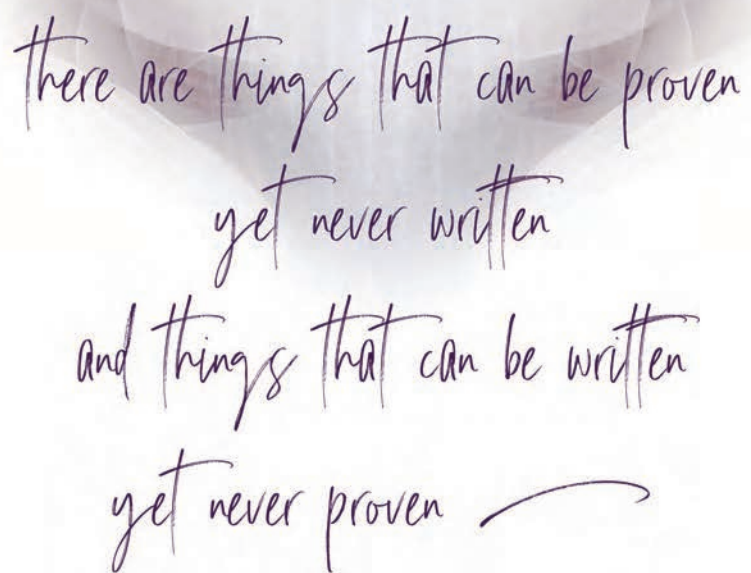 there are things that can be proven
yet never written
and things that can be written
yet never proven